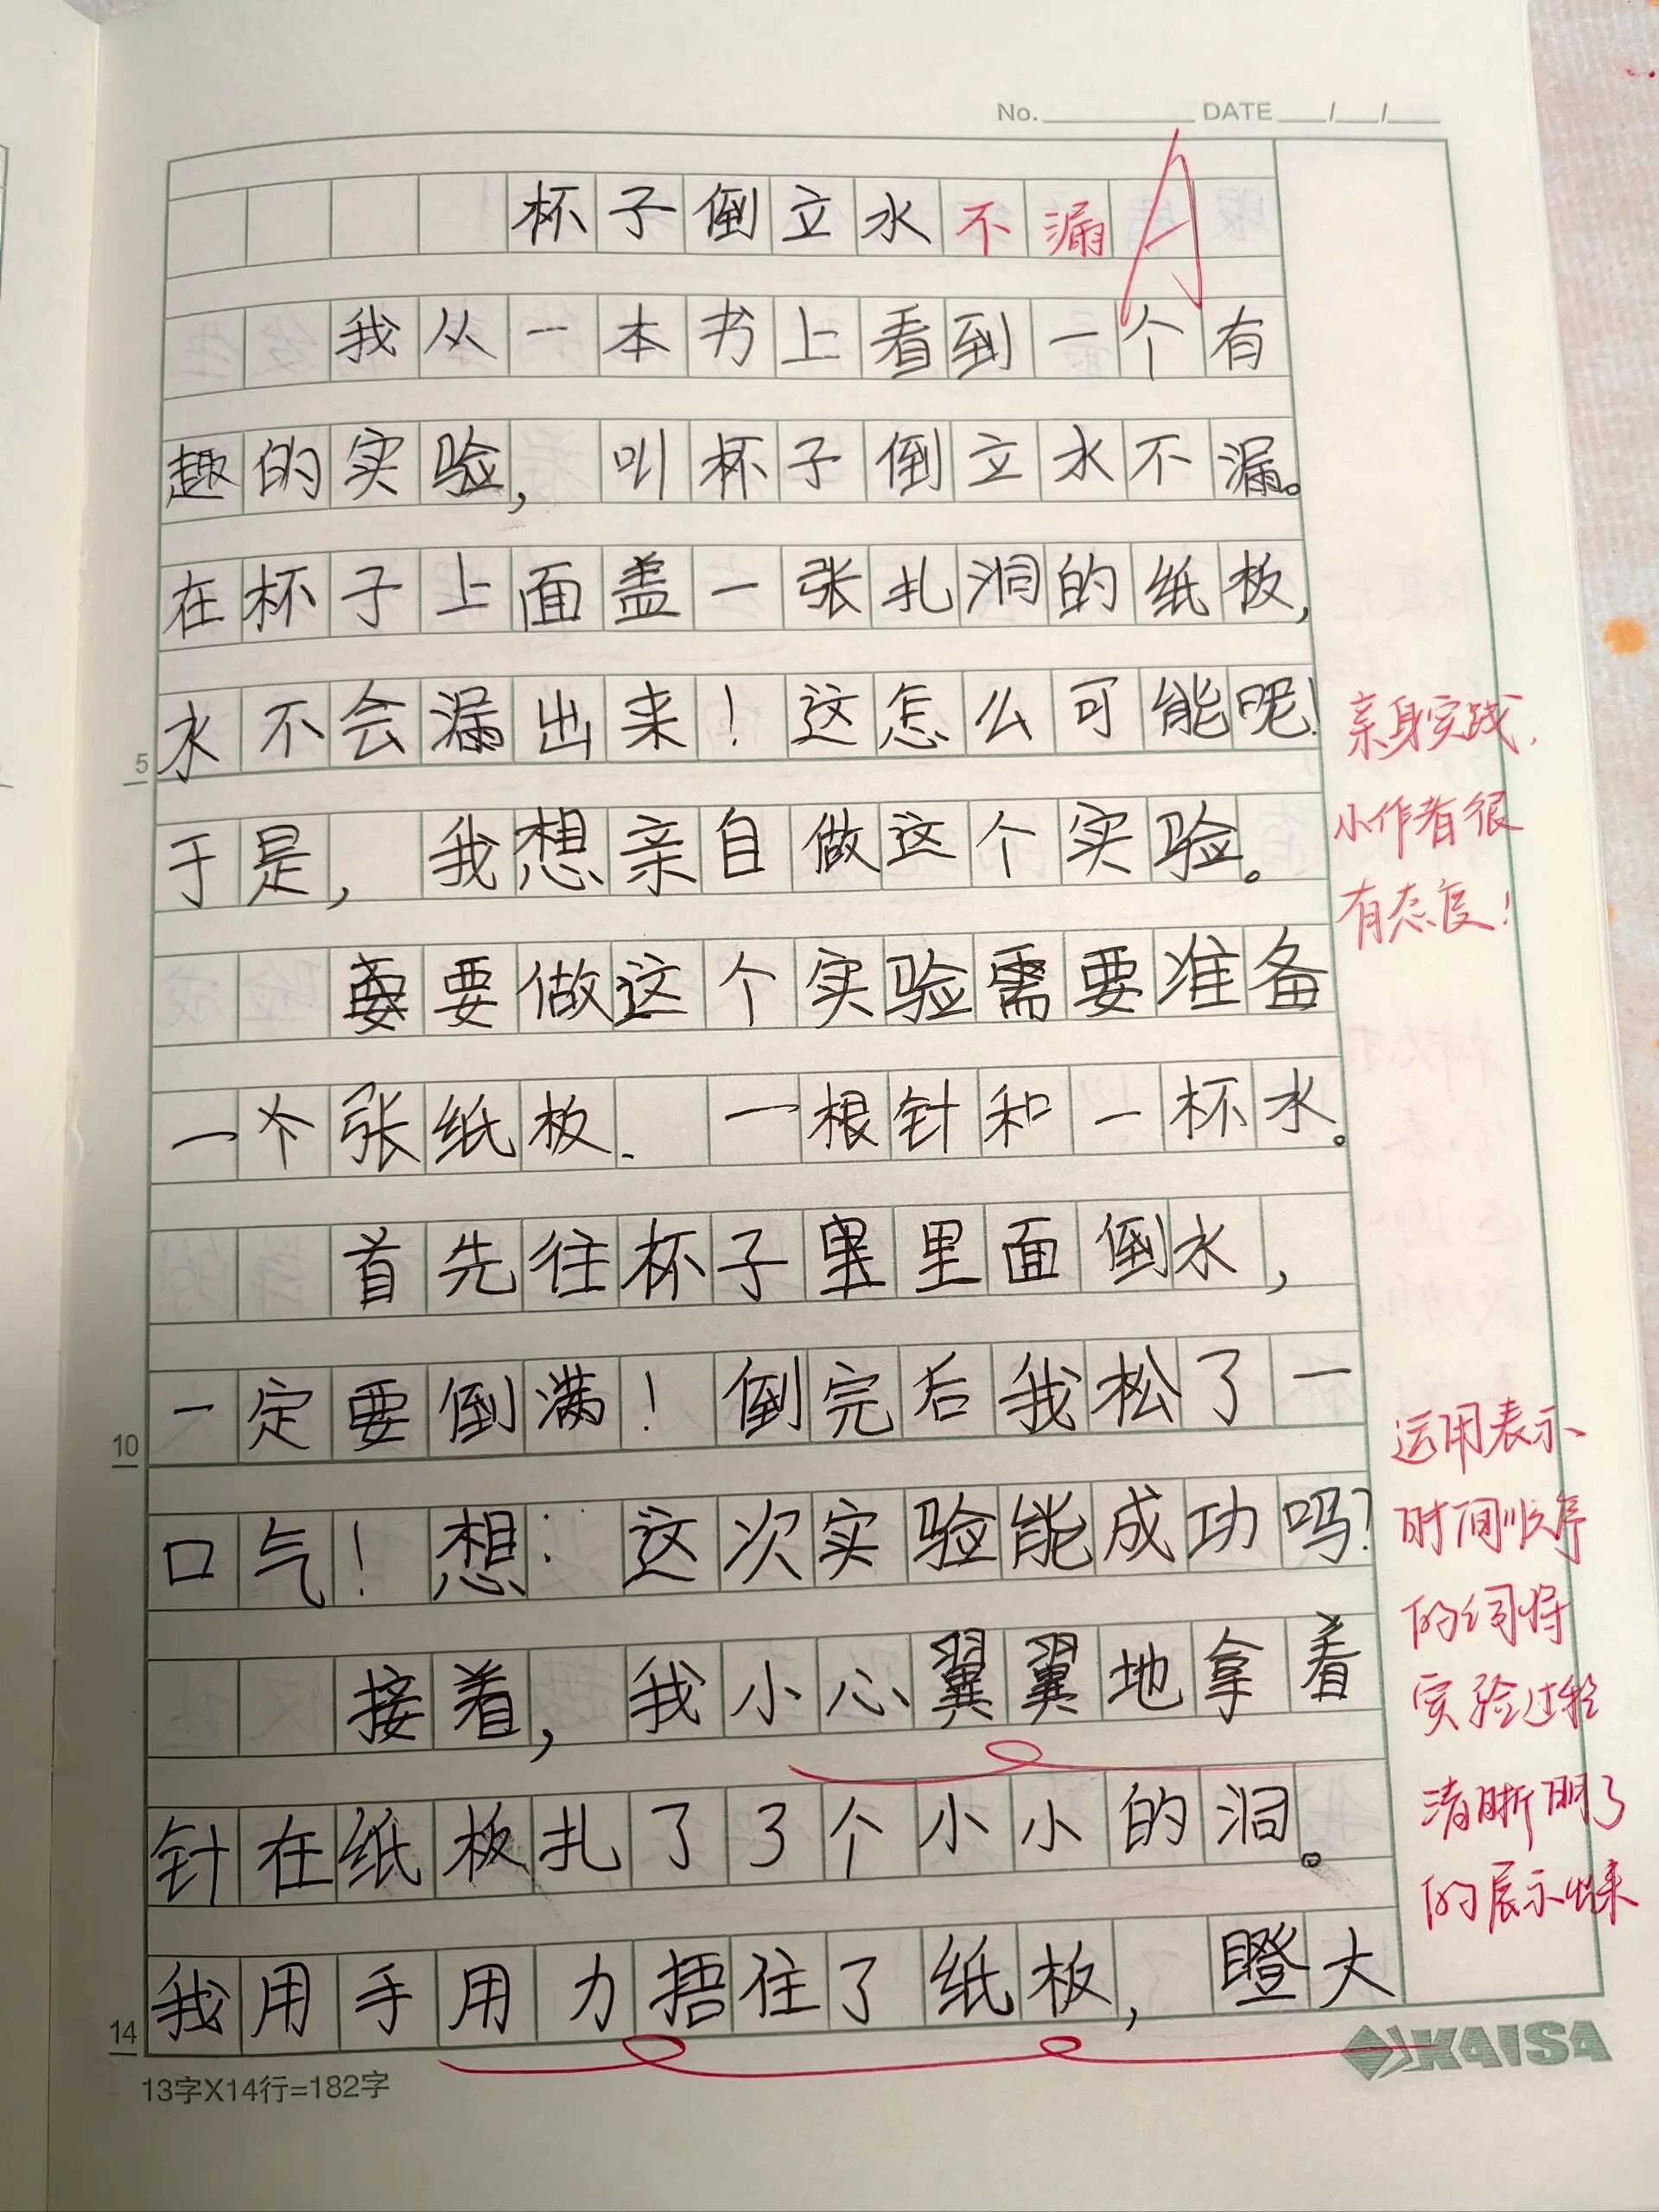 No. DATE / /
杯子倒立水不漏 A
我从一本书上看到一个有
趣的实验，叫杯子倒立水不漏。
在杯子上面盖一张扎洞的纸板，
水不会漏出来！这怎么可能呢！
5
于是，我想亲自做这个实验。
要做这个实验需要准备
一个张纸板、一根针和一杯水。
首先往杯子里面倒水，
一定要倒满！倒完后我松了一
10
口气！想：这次实验能成功吗？
接着，我小心翼翼地拿着
针在纸板扎了3个小小的洞。
我用手用力捂住了纸板，瞪大
14
13字X14行=182字
KAISA
亲身实践，
小作者很
有态度！
运用表示
时间顺序
的词将
实验过程
清晰明了
的展示出来